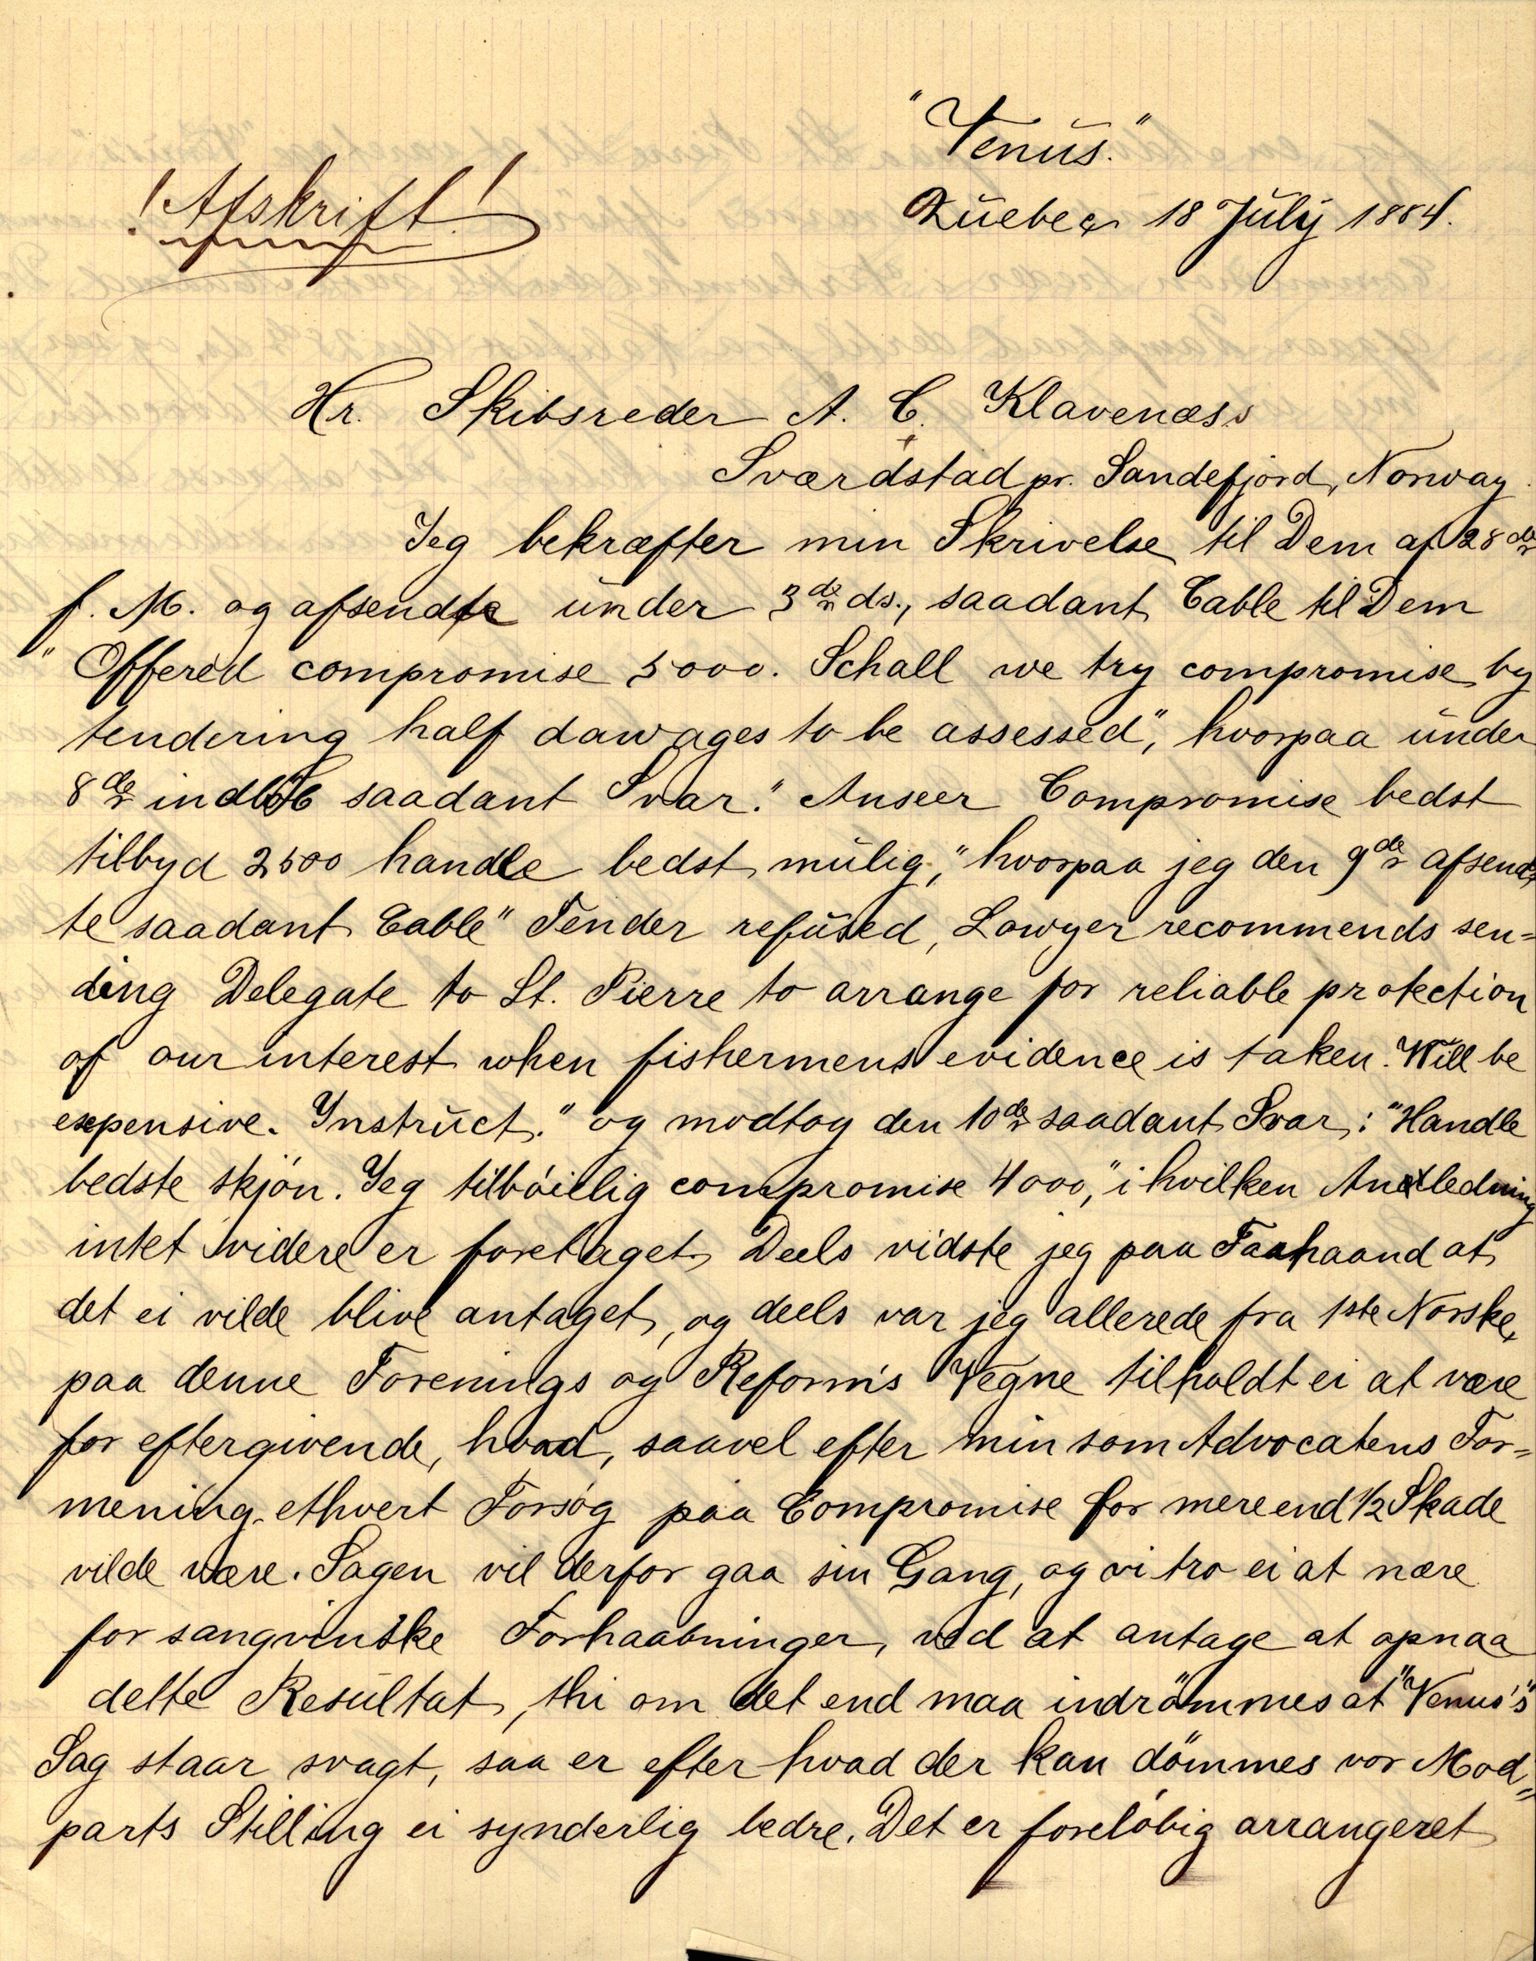 "Venus."
! Afskrift !
Quebec 18 July 1884.
Hr. Skibsreder A. C. Klavenæss
Sværdstad pr. Sandefjord, Norway.
Jeg bekræfter min Skrivelse til Dem af 28de
f. M. og afsendte under 3de ds., saadant Cable til Dem
"Offered compromise 5000. Schall we try compromise by
tendering half damages to be assessed", hvorpaa under
8de indløb saadant Svar: "Anseer Compromise bedst
tilbyd 2500 handle bedst mulig", hvorpaa jeg den 9de afsend-
te saadant Cable "Tender refused, Lawyer recommends sen=
ding Delegate to St. Pierre to arrange for reliable protection
of our interest when fishermens evidence is taken. Will be
expensive. Instruct." og modtog den 10de saadant Svar: "Handle
bedste skjøn. Jeg tilbøielig compromise 4000", i hvilken Anledning
intet videre er foretaget. Deels vidste jeg paa Forhaand at
det ei vilde blive antaget, og deels var jeg allerede fra 1ste Norske,
paa denne Forenings og Reform's Vegne tilholdt ei at være
for eftergivende, hvad, saavel efter min som Advocatens For=
mening ethvert Forsøg paa Compromise for mere end 1/2 Skade
vilde være. Sagen vil derfor gaa sin Gang, og vi tro ei at nære
for sangvinske Forhaabninger, ved at antage at opnaa
dette Resultat, thi om det end maa indrømmes at "Venus's"
Sag staar svagt, saa er efter hvad der kan dømmes vor Mod=
parts Stilling ei synderlig bedre. Det er foreløbig arrangeret